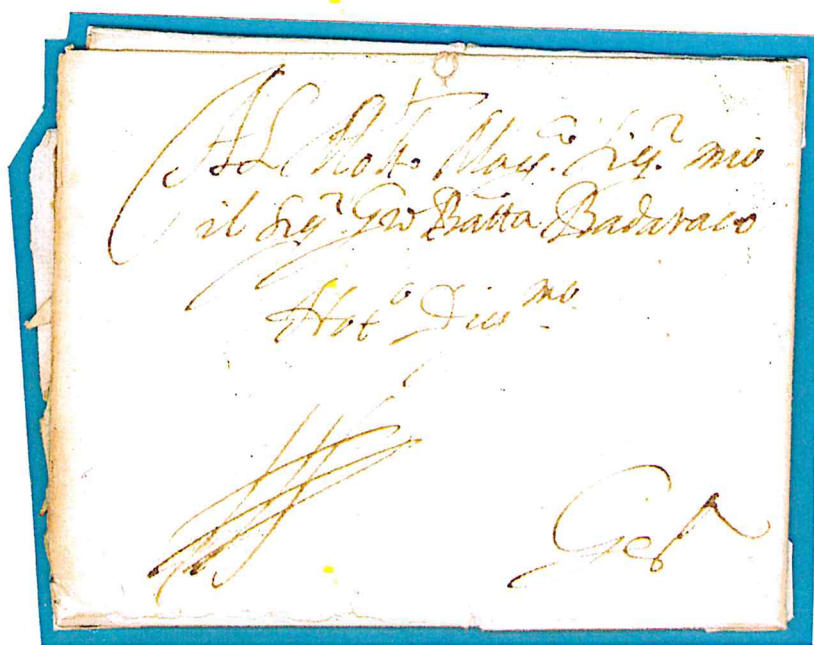 Al Molto Mag.co Sig.r mio
il Sig.r Gio Batta Badaraco
Not.o Dig.mo